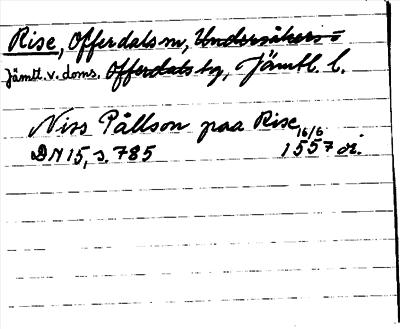 Rise, Offerdals sn, Undersåkers
Jämtl. v. doms. Offerdals tg, Jämtl. l.
Niss Pållson paa Rise
16/6
DN 15, s. 785 1557 or.